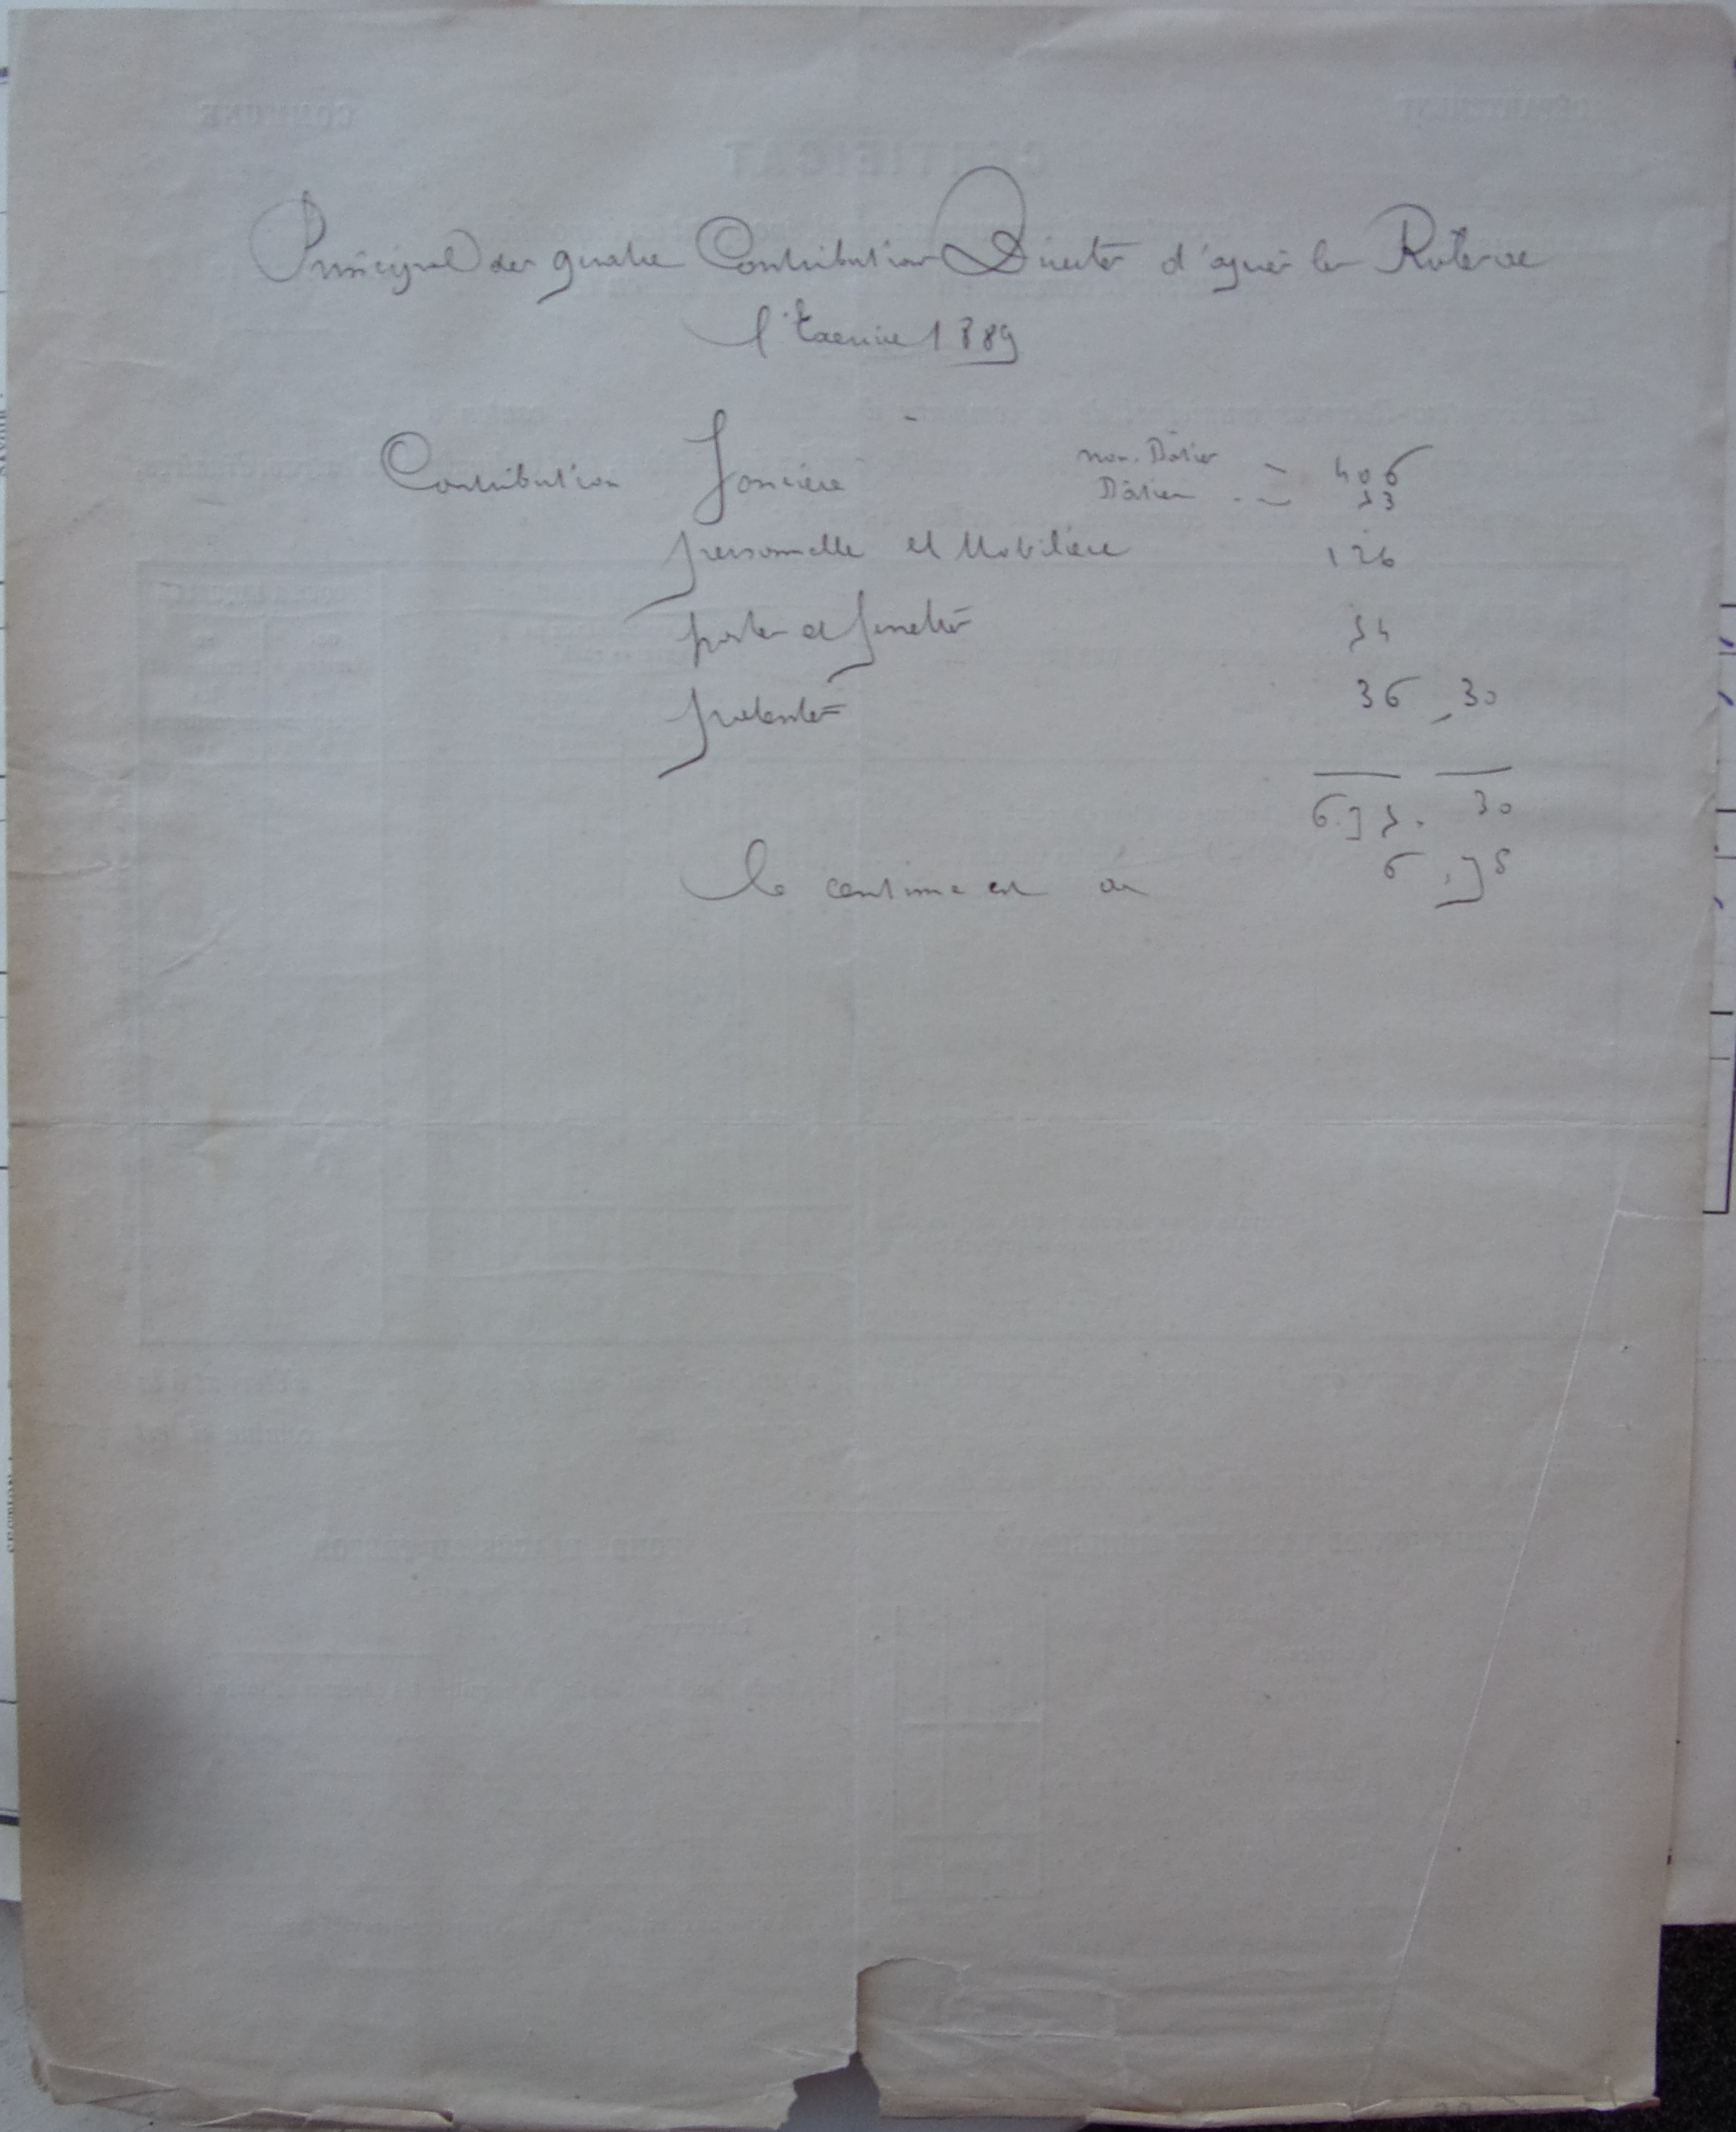 Principal des quatre Contributions Directes d'après les Rôles de
l'Exercice 1889
Contribution foncière non Bâties = 406
Bâties = 53
personnelle et Mobilière 126
portes et fenêtres 54
patentes 36,30
675.30
le centime est de 6,75